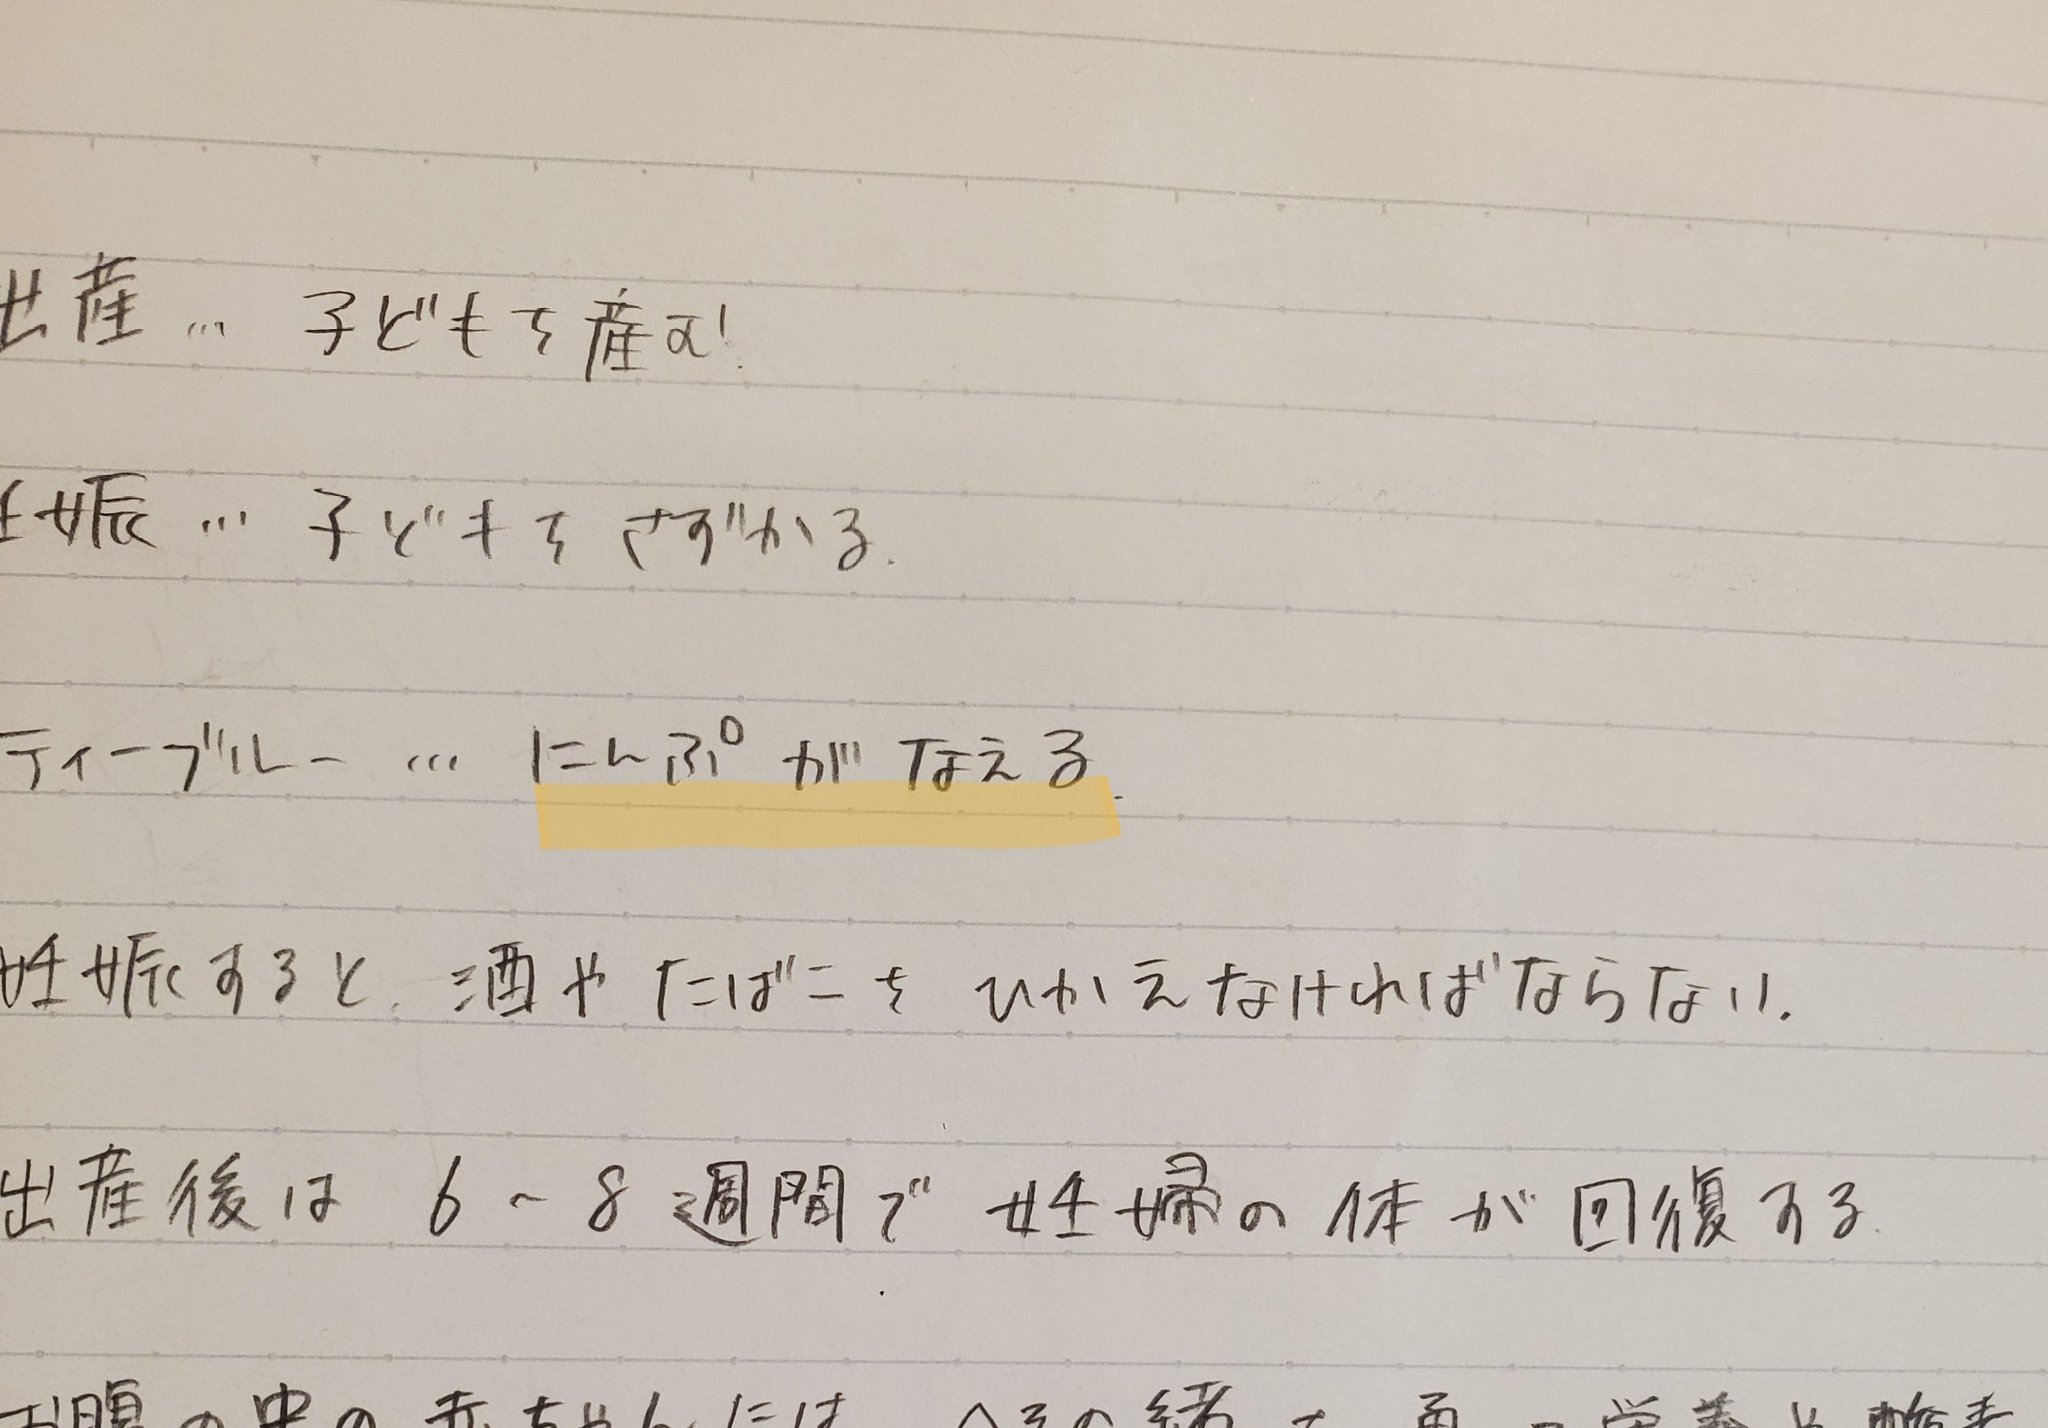 出産… 子どもを産む!
妊娠… 子どもをさずかる.
ティーブルー… にんぷがなえる.
妊娠すると、酒やたばこをひかえなければならない.
出産後は 6~8週間で 妊婦の体が回復する.
お腹の中の赤ちゃんには、へその緒